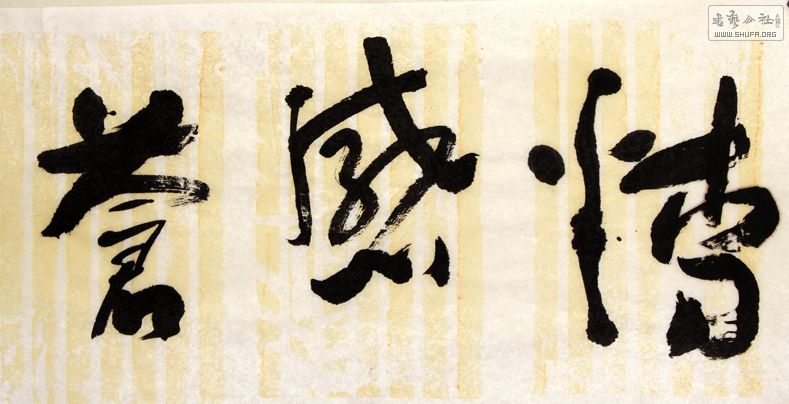 書藝公社
WWW.SHUFA.ORG
情感